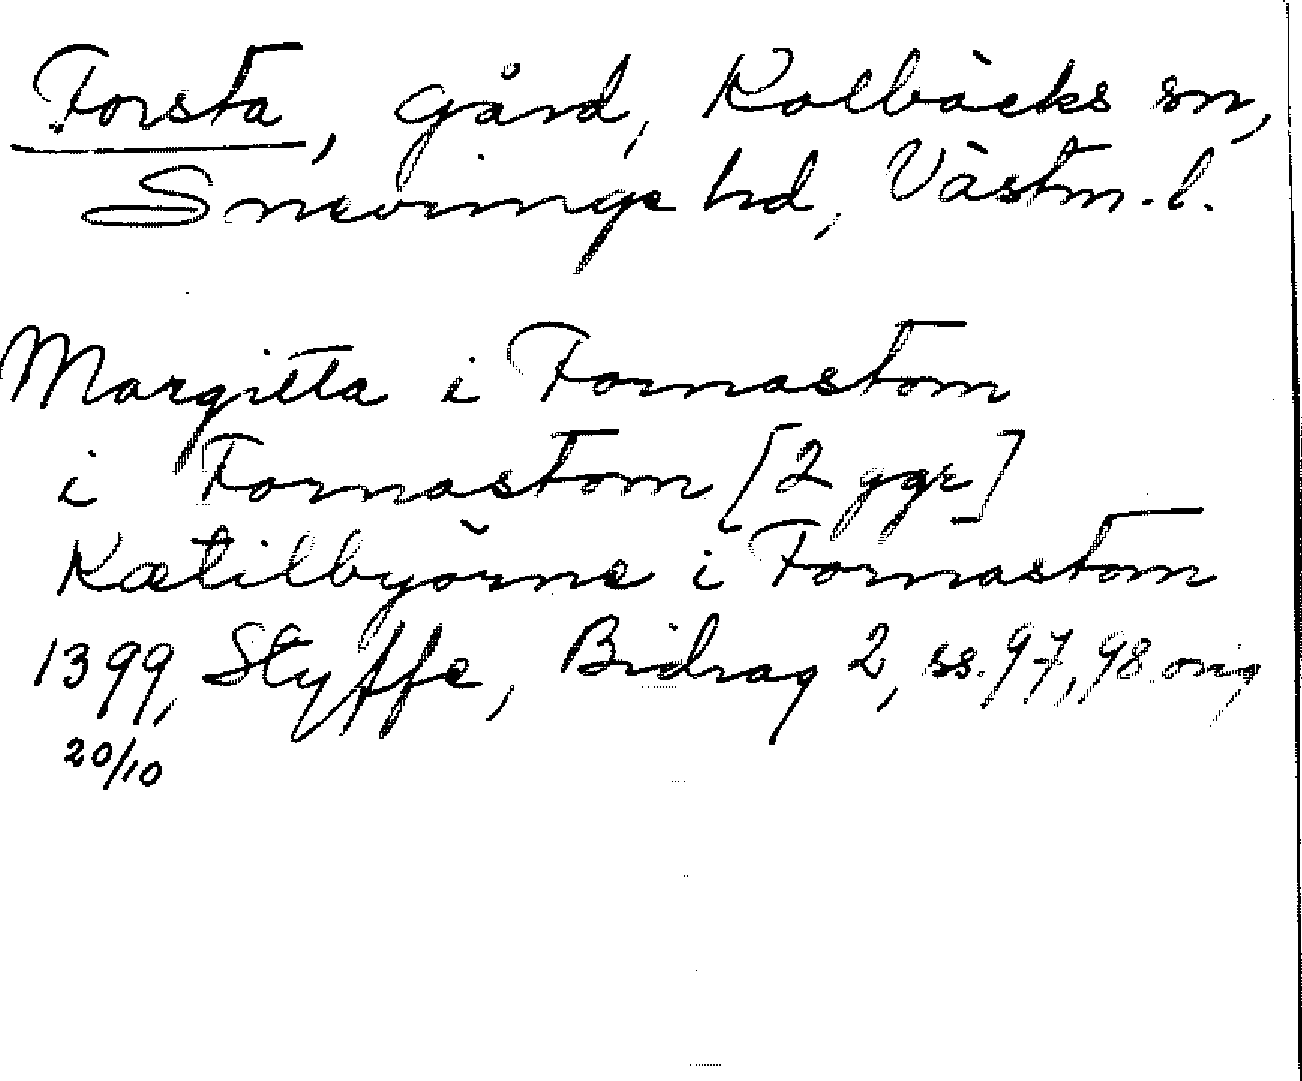 Forsta, gård, Kolbäcks sn,
Snevringe hd, Västm. l.
Margitta i Fornastom
i Fornastom [2 ggr]
Kætilbyörne i Fornastom
1399, Styffe, Bidrag 2, ss. 97, 98. orig
20/10